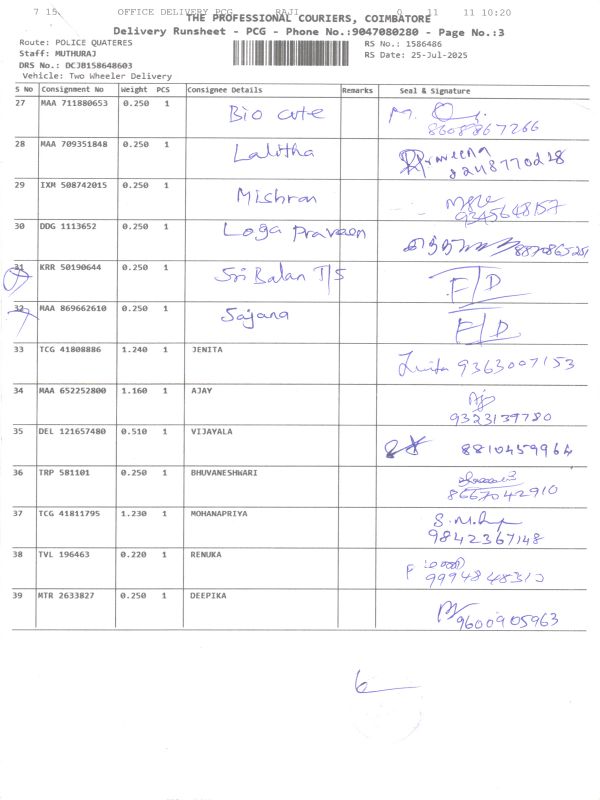 7 15 OFFICE DELIVERY PCG RAJI 0 11 11 10:20
THE PROFESSIONAL COURIERS, COIMBATORE
Delivery Runsheet - PCG - Phone No.:9047080280 - Page No.:3
Route: POLICE QUATERES RS No.: 1586486
Staff: MUTHURAJ RS Date: 25-Jul-2025
DRS No.: DCJB158648603
Vehicle: Two Wheeler Delivery
S No Consignment No Weight PCS Consignee Details Remarks Seal & Signature
27 MAA 711880653 0.250 1 Bio cute M. 8608867266
28 MAA 709351848 0.250 1 Lalitha Praveena 8248770228
29 IXM 508742015 0.250 1 Mishran 9345648157
30 DDG 1113652 0.250 1 Loga Praveen
31 KRR 50190644 0.250 1 Sri Balan T/S F/D
32 MAA 869662610 0.250 1 Sajana F/D
33 TCG 41808886 1.240 1 JENITA Jenita 9363007153
34 MAA 652252800 1.160 1 AJAY 9323139780
35 DEL 121657480 0.510 1 VIJAYALA 8810459964
36 TRP 581101 0.250 1 BHUVANESHWARI 8667042910
37 TCG 41811795 1.230 1 MOHANAPRIYA 9842367148
38 TVL 196463 0.220 1 RENUKA
39 MTR 2633827 0.250 1 DEEPIKA 9600905963